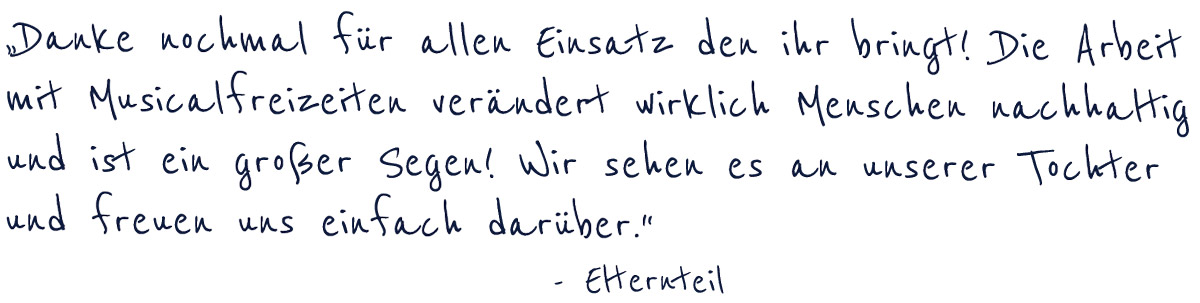 „Danke nochmal für allen Einsatz den ihr bringt! Die Arbeit
mit Musicalfreizeiten verändert wirklich Menschen nachhaltig
und ist ein großer Segen! Wir sehen es an unserer Tochter
und freuen uns einfach darüber.“
- Elternteil